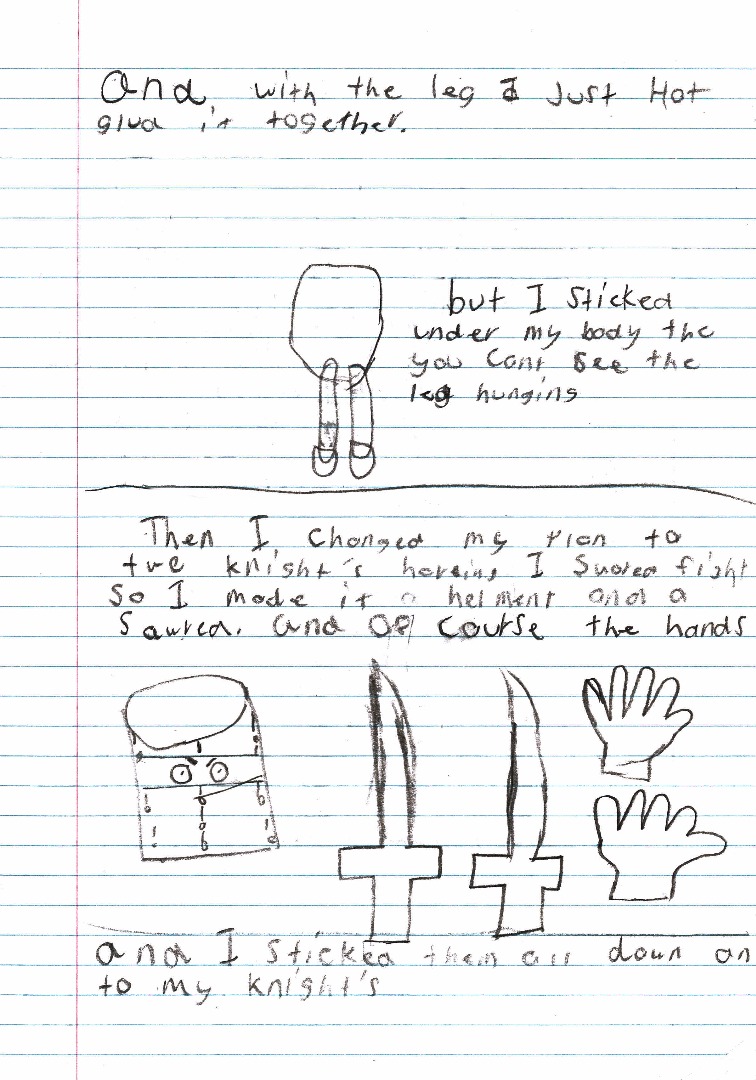 and, with the leg I Just Hot
glud it together.
but I Sticked
under my body the
you Cant See the
leg hungins
Then I Changed my Plan to
tve knight's haveing I Suored fight
So I made it a helment and a
Sawred. and of course the hands
and I sticked them all down on
to my knight's